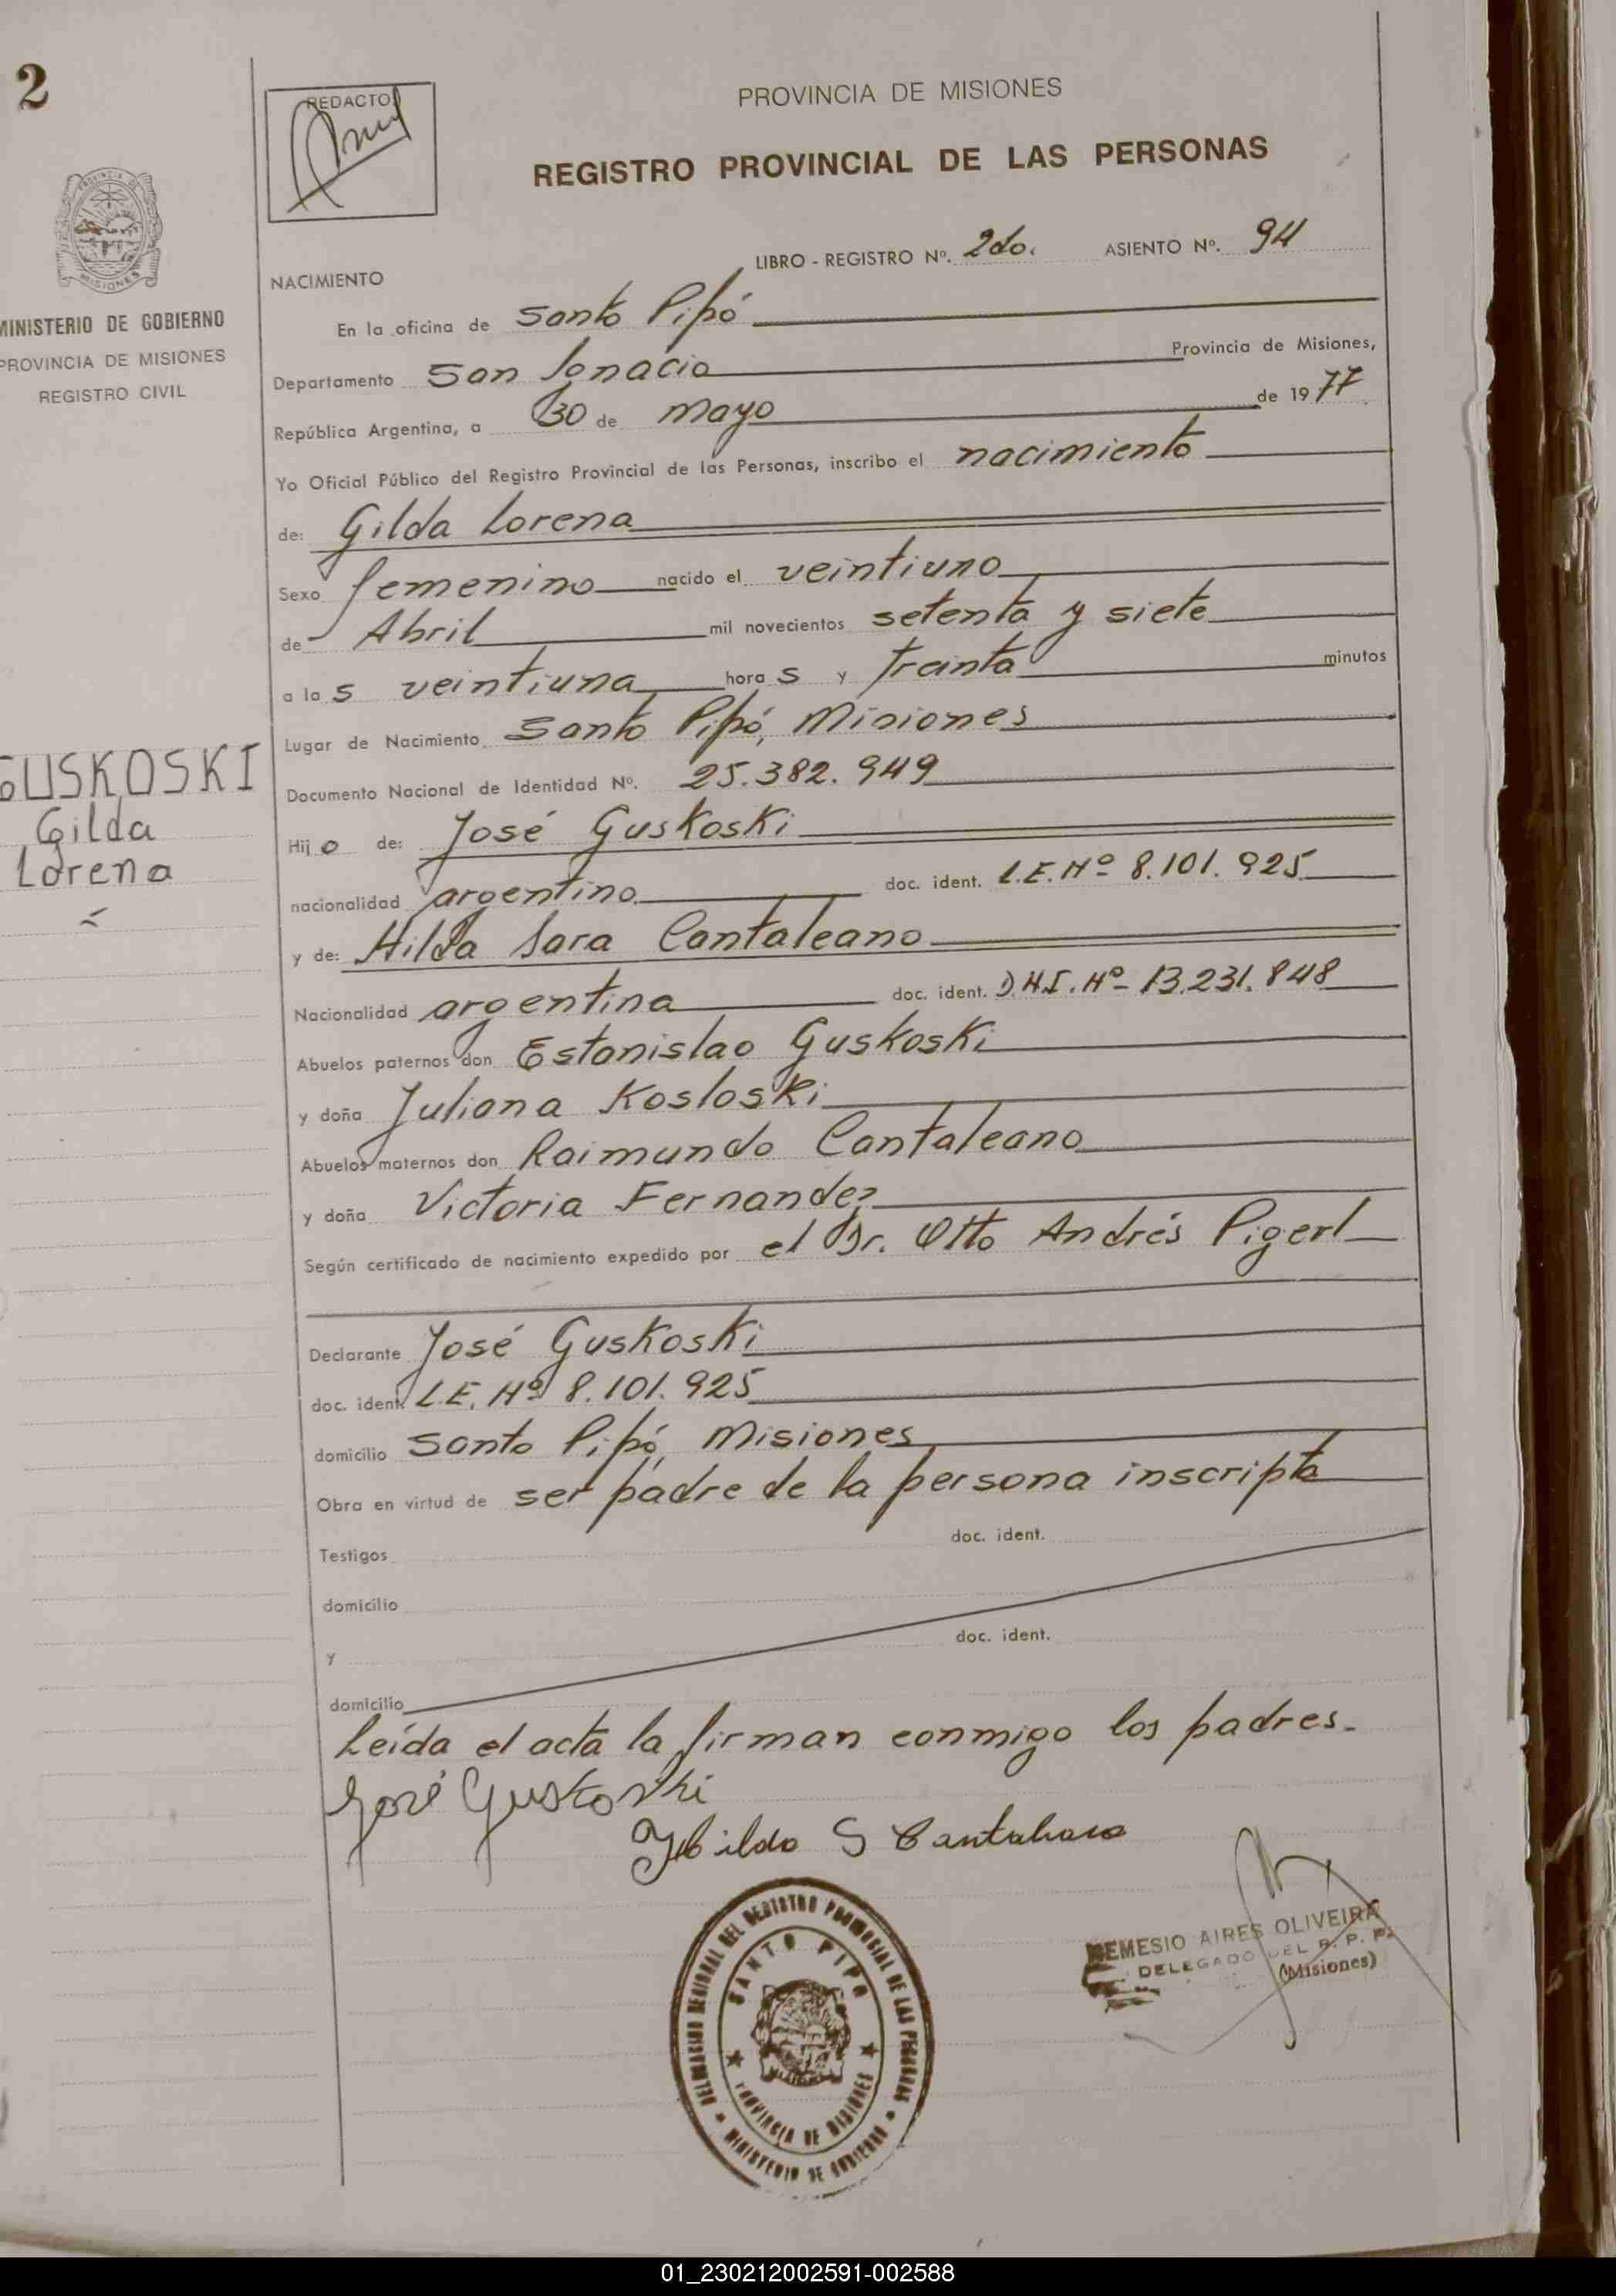 2
REDACTO
PROVINCIA DE MISIONES
REGISTRO PROVINCIAL DE LAS PERSONAS
LIBRO - REGISTRO Nº. 2do. ASIENTO Nº. 94
NACIMIENTO
MINISTERIO DE GOBIERNO
PROVINCIA DE MISIONES
REGISTRO CIVIL
En la oficina de Santo Pipó
Departamento San Ignacio Provincia de Misiones,
República Argentina, a 30 de mayo de 1977
Yo Oficial Público del Registro Provincial de las Personas, inscribo el nacimiento
de: Gilda Lorena
Sexo femenino nacido el veintiuno
de Abril mil novecientos setenta y siete
a las veintiuna horas y treinta minutos
Lugar de Nacimiento Santo Pipó, Misiones
GUSKOSKI
Gilda
Lorena
Documento Nacional de Identidad Nº. 25.382.949
Hijo de: José Guskoski
nacionalidad argentino doc. ident. L.E. Nº 8.101.925
y de: Hilda Sara Cantaleano
Nacionalidad argentina doc. ident. D.N.I. Nº 13.231.848
Abuelos paternos don Estanislao Guskoski
y doña Juliana Kosloski
Abuelos maternos don Raimundo Cantaleano
y doña Victoria Fernandez
Según certificado de nacimiento expedido por el Dr. Otto Andrés Pigerl
Declarante José Guskoski
doc. ident. L.E. Nº 8.101.925
domicilio Santo Pipó, Misiones
Obra en virtud de ser padre de la persona inscripta
Testigos doc. ident.
domicilio
y doc. ident.
domicilio
Leída el acta la firman conmigo los padres.
José Guskoski
Hilda S Cantaleano
DELEGACION REGIONAL DEL REGISTRO PROVINCIAL DE LAS PERSONAS
SANTO PIPO
PROVINCIA DE MISIONES
MINISTERIO DE GOBIERNO
NEMESIO AIRES OLIVEIRA
DELEGADO DEL R. P. P.
(Misiones)
01_230212002591-002588